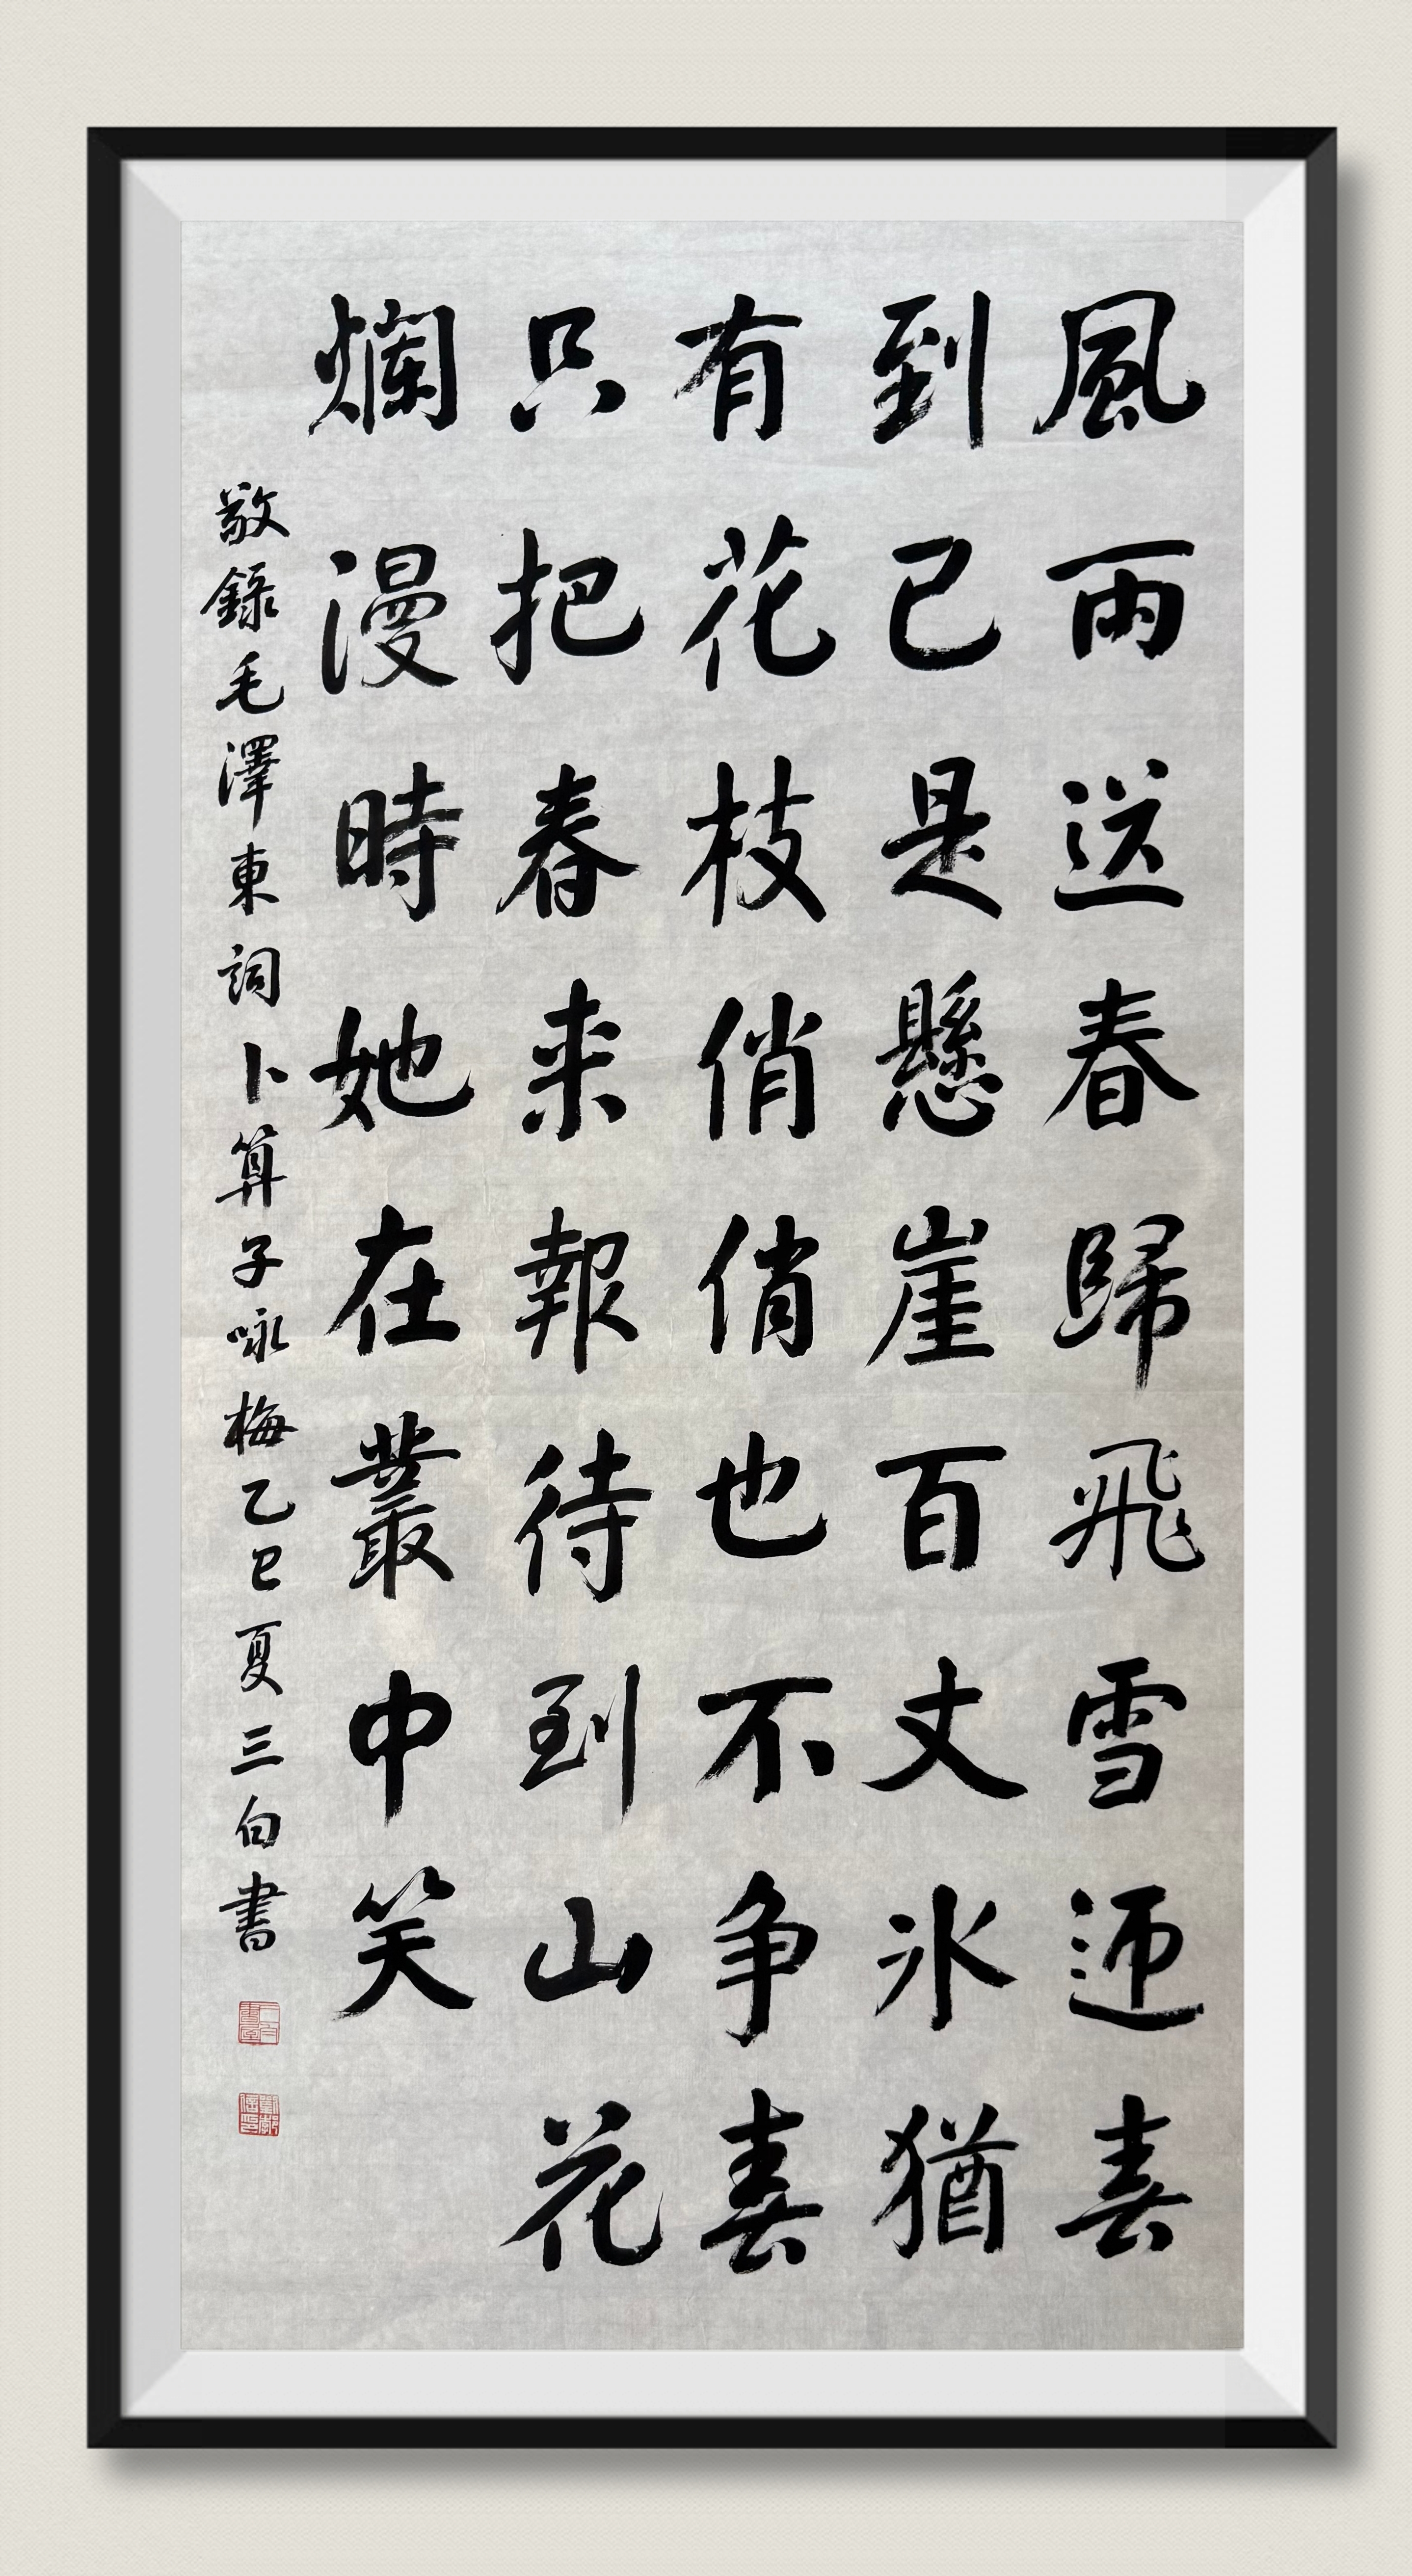 風雨送春歸飛雪迎春
到已是懸崖百丈冰猶
有花枝俏俏也不争春
只把春来報待到山花
爛漫時她在叢中笑
敬錄毛澤東詞卜算子咏梅乙巳夏三白書